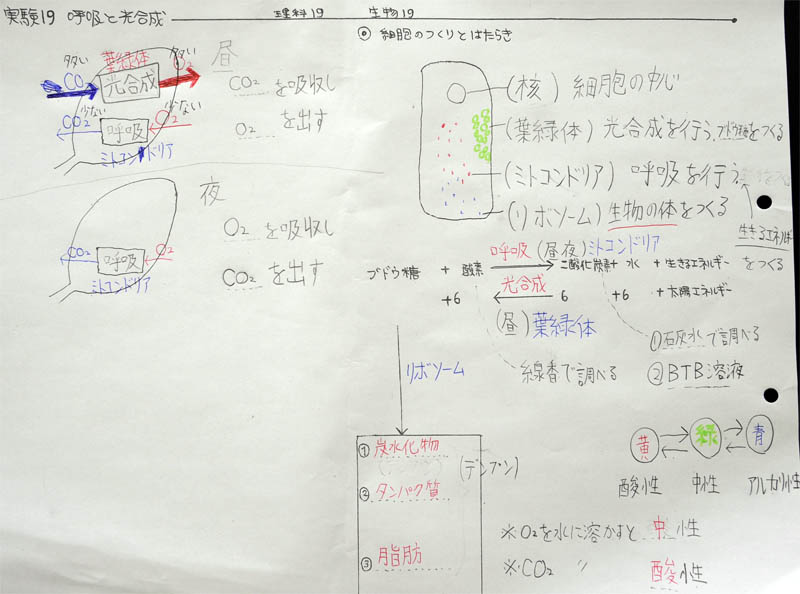 実験19 呼吸と光合成
理科19
生物19
昼
多い
葉緑体
多い
CO₂
光合成
O₂
少ない
少ない
CO₂
呼吸
O₂
ミトコンドリア
CO₂を吸収し
O₂を出す
夜
CO₂
呼吸
O₂
ミトコンドリア
O₂を吸収し
CO₂を出す
◎ 細胞のつくりとはたらき
(核) 細胞の中心
(葉緑体) 光合成を行う。ブドウ糖をつくる
(ミトコンドリア) 呼吸を行う。
(リボソーム) 生物の体をつくる
生きるエネルギー
をつくる
呼吸 (昼夜) ミトコンドリア
ブドウ糖 + 酸素 → 二酸化炭素 + 水 + 生きるエネルギー
光合成
+6 ← 6 +6 + 太陽エネルギー
(昼) 葉緑体
線香で調べる
①石灰水で調べる
②BTB溶液
リボソーム
①炭水化物
(デンプン)
②タンパク質
③脂肪
黄 緑 青
酸性 中性 アルカリ性
※O₂を水に溶かすと 中性
※CO₂ 〃 酸性